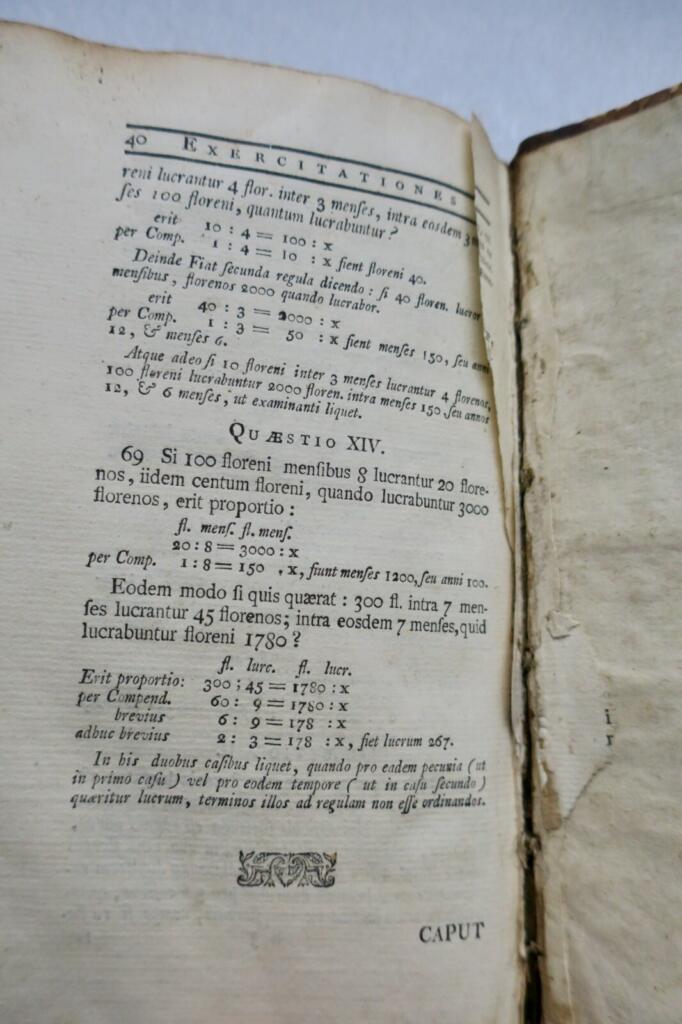 40 EXERCITATIONES
reni lucrantur 4 flor. inter 3 menſes, intra eosdem 3
ſes 100 floreni, quantum lucrabuntur?
erit 10 : 4 = 100 : x
per Comp. 1 : 4 = 10 : x fient floreni 40.
Deinde Fiat ſecunda regula dicendo : ſi 40 floren. lucror
menſibus, florenos 2000 quando lucrabor.
erit 40 : 3 = 2000 : x
per Comp. 1 : 3 = 50 : x fient menſes 150, ſeu anni
12, & menſes 6.
Atque adeo ſi 10 floreni inter 3 menſes lucrantur 4 florenos,
100 floreni lucrabuntur 2000 floren. intra menſes 150 ſeu annos
12, & 6 menſes, ut examinanti liquet.
QUÆSTIO XIV.
69 Si 100 floreni menſibus 8 lucrantur 20 flore-
nos, iidem centum floreni, quando lucrabuntur 3000
florenos, erit proportio :
fl. menſ. fl. menſ.
20 : 8 = 3000 : x
per Comp. 1 : 8 = 150 , x, fiunt menſes 1200, ſeu anni 100.
Eodem modo ſi quis quærat : 300 fl. intra 7 men-
ſes lucrantur 45 florenos; intra eosdem 7 menſes, quid
lucrabuntur floreni 1780?
fl. lurc. fl. lucr.
Erit proportio: 300 ; 45 = 1780 : x
per Compend. 60 : 9 = 1780 : x
brevius 6 : 9 = 178 : x
adhuc brevius 2 : 3 = 178 : x, fiet lucrum 267.
In his duobus caſibus liquet, quando pro eadem pecunia (ut
in primo caſu) vel pro eodem tempore (ut in caſu ſecundo)
quæritur lucrum, terminos illos ad regulam non eſſe ordinandos.
CAPUT
i
r